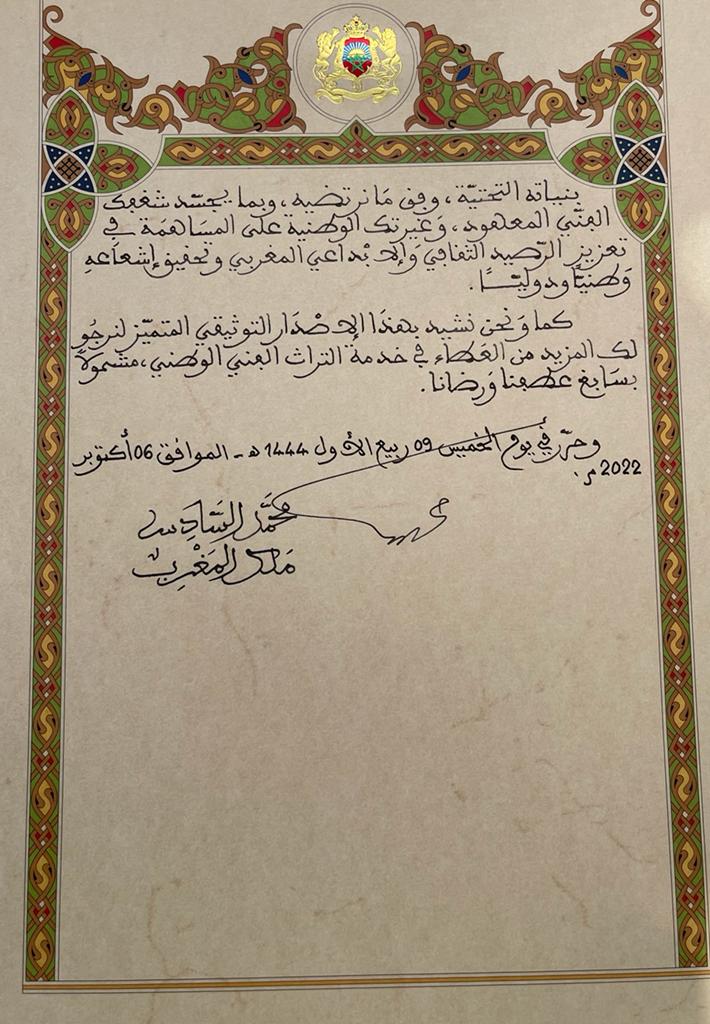 بنياته التحتيّة، وفق مَا نرتضيه، وبما يجسّد شغفك
الفنّي المعهود، وَغيرتك الوطنية على المسَاهمَة في
تعزيز الرّصيد الثقافي والإبْداعي المغربي وتحقيق إشعَاعهِ
وَطنيّاً ودوليّـــاً.
كما وَنحن نشيد بهذَا الإصْدَار التوثيقي المتميّز لنرجُو
لك المزيد من العَطاء في خدمة التراث الفني الوطني، مشمولاً
بسَابغ عطفنا وَرضانا.
وحرّر في يوم الخميس 09 ربيع الأول 1444 هـ - الموافق 06 أكتوبر
2022 م.
محمّد السَّادِس
مَلك المَغْرِب